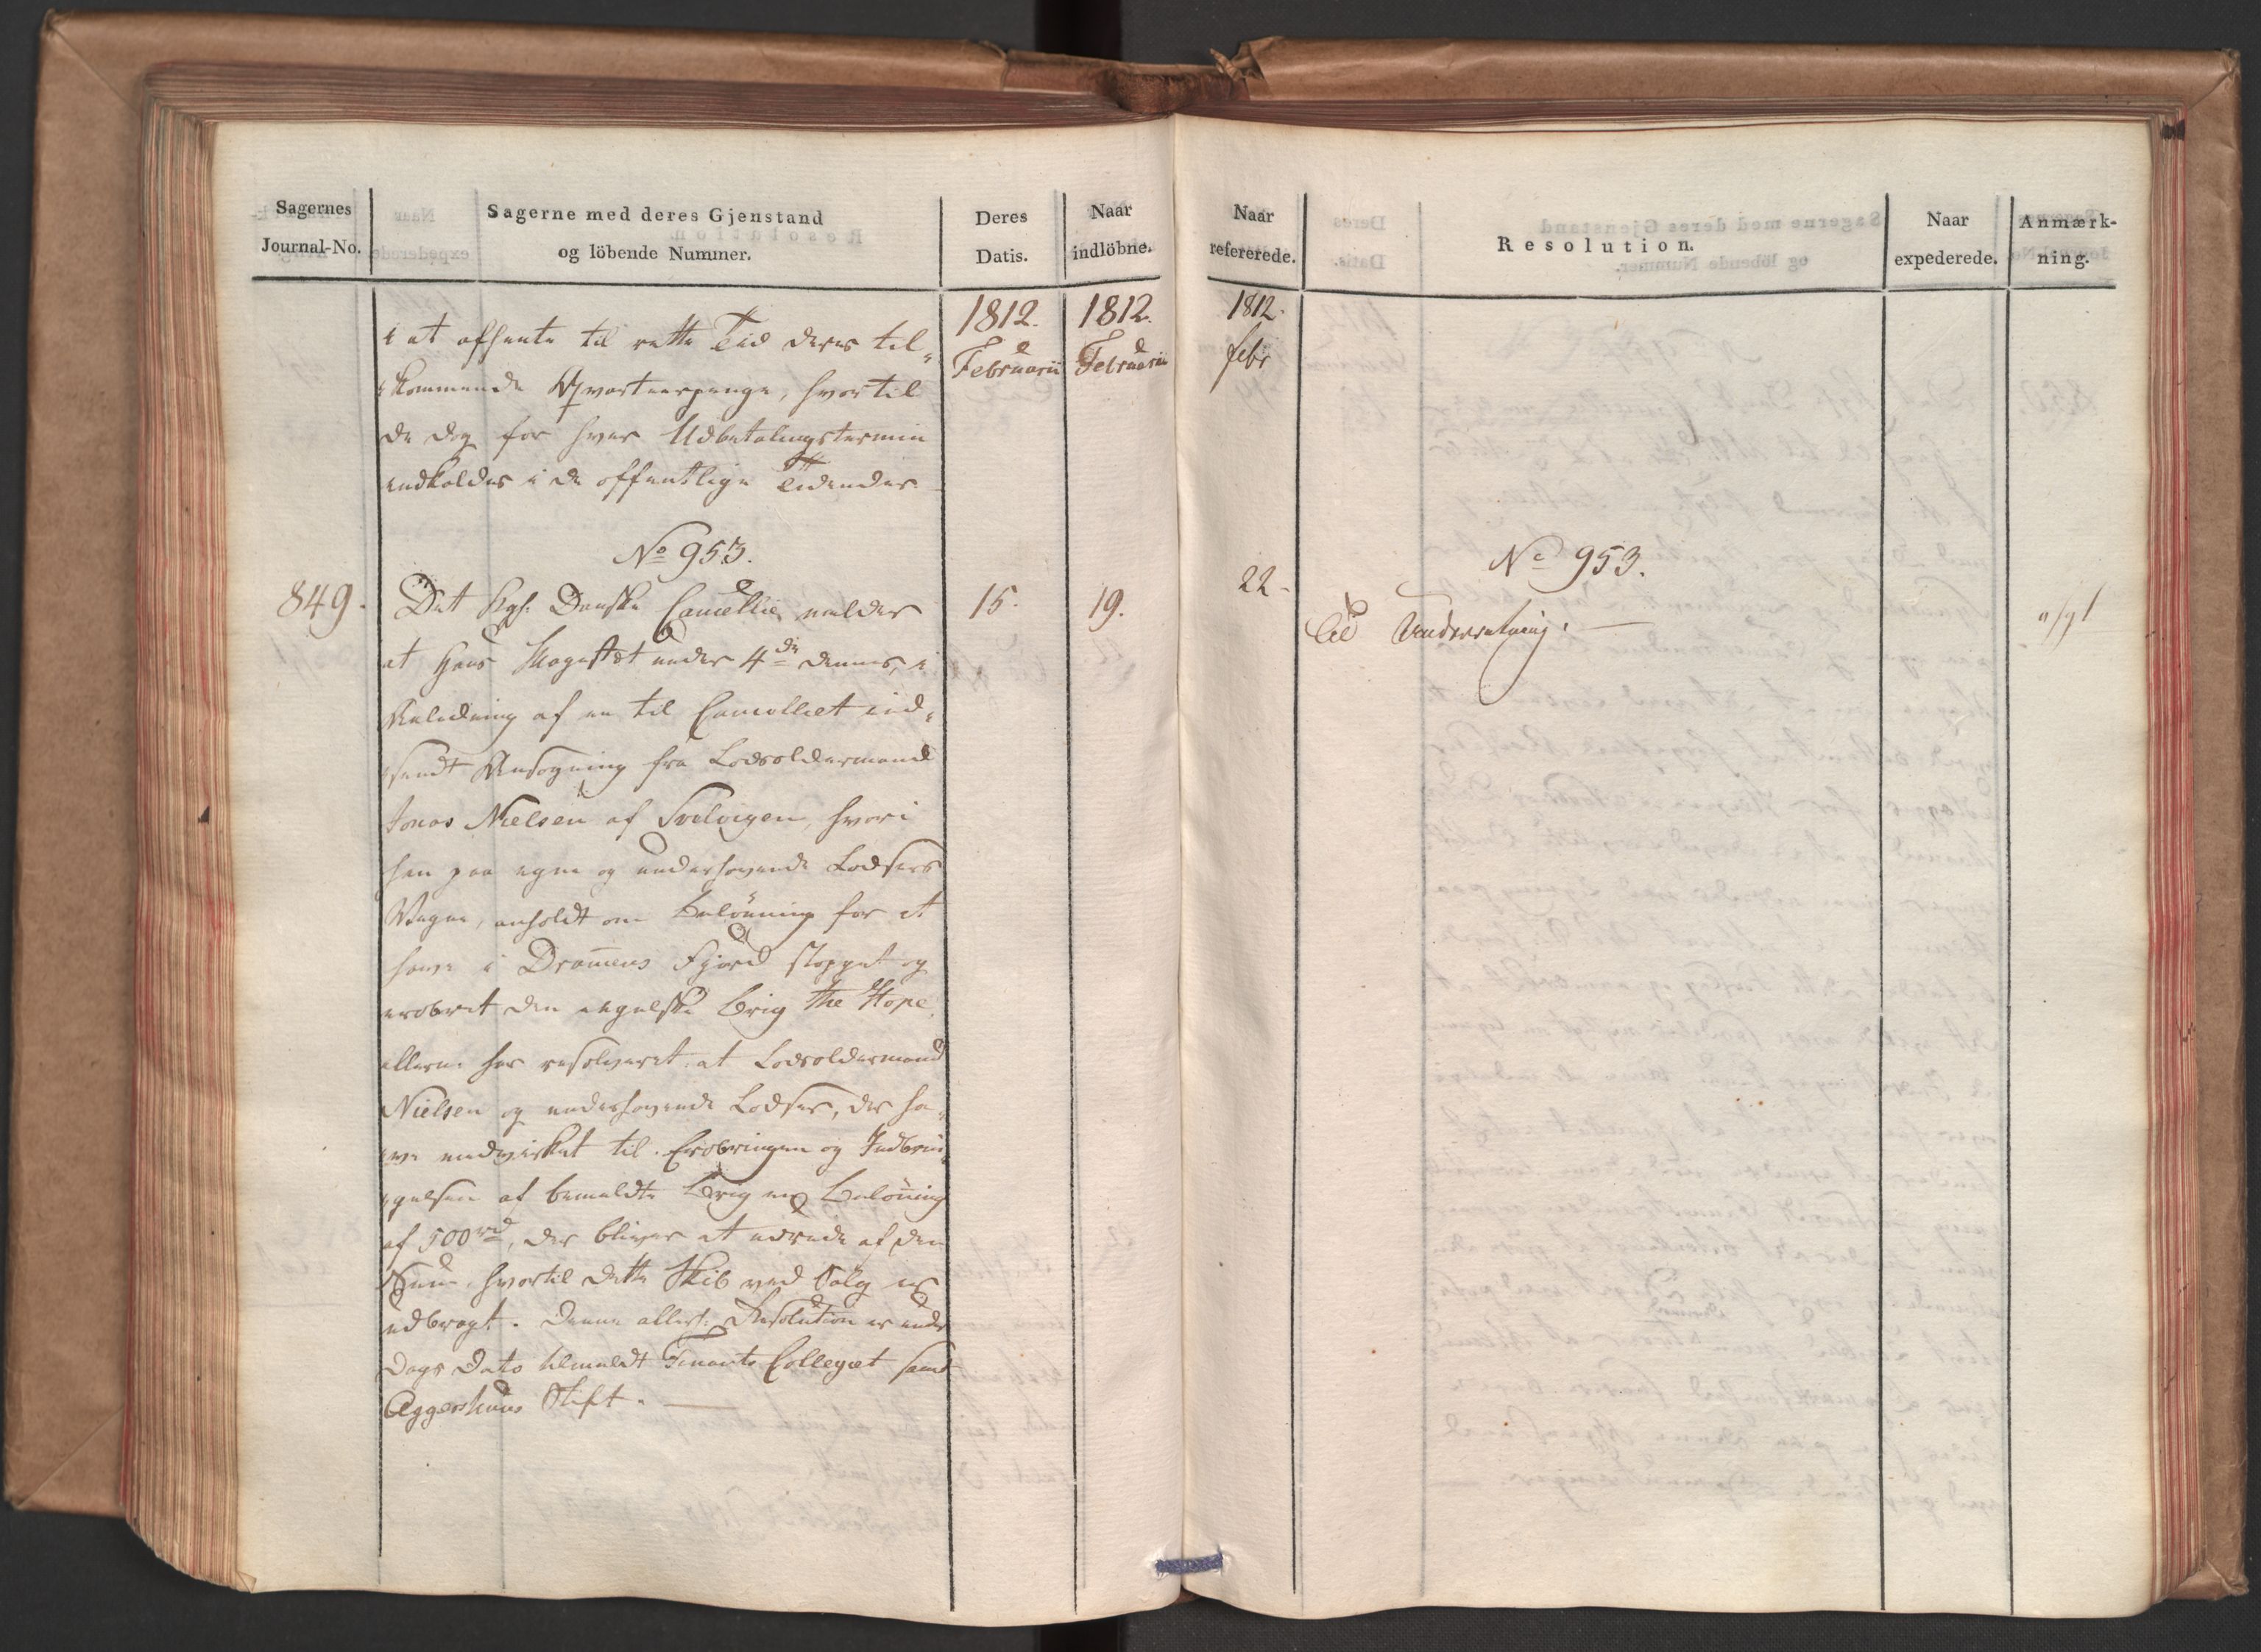 Sagernes
Journal-No.
Sagerne med deres Gjenstand
og löbende Nummer.
Deres
Datis.
Naar
indlöbne.
1812.
Februarii
1812.
Februarii
i at afhente til rette Tid deres til-
kommende Qvarteerpenge, hvortil
de dog for hver Udbetalingstermin
indkaldes i de offentlige Tidender.
No 953.
849.
Det Kgl. Danske Cancellie melder
15.
19.
at Hans Majestæt under 4de dennes, i
Anledning af en til Cancelliet ind-
sendt Ansøgning fra Lodsoldermand
Jonas Nielsen af Svelvigen, hvori
han paa egne og underhavende Lodsers
Vegne, anholdt om Belönning for at
have i Dram̅ens Fjord stoppet og
erobret den engelske Brig The Hope,
allern. har resolveret: at Lodsoldermand
Nielsen og underhavende Lodser, der ha-
ve medvirket til Erobringen og Indbrin-
gelsen af bemeldte Brig en Belön̅ing
af 500 rd, der bliver at udrede af den
Sum, hvortil dette Skib ved Salg er
udbragt. Denne allerh. Resolution er under
Dags Dato tilmeldt Finants Collegiet samt
Aggershuus Stift.
Naar
refererede.
Resolution.
Naar
expederede.
Anmærk-
ning.
1812.
febr
22.
No 953.
Til Underretning.